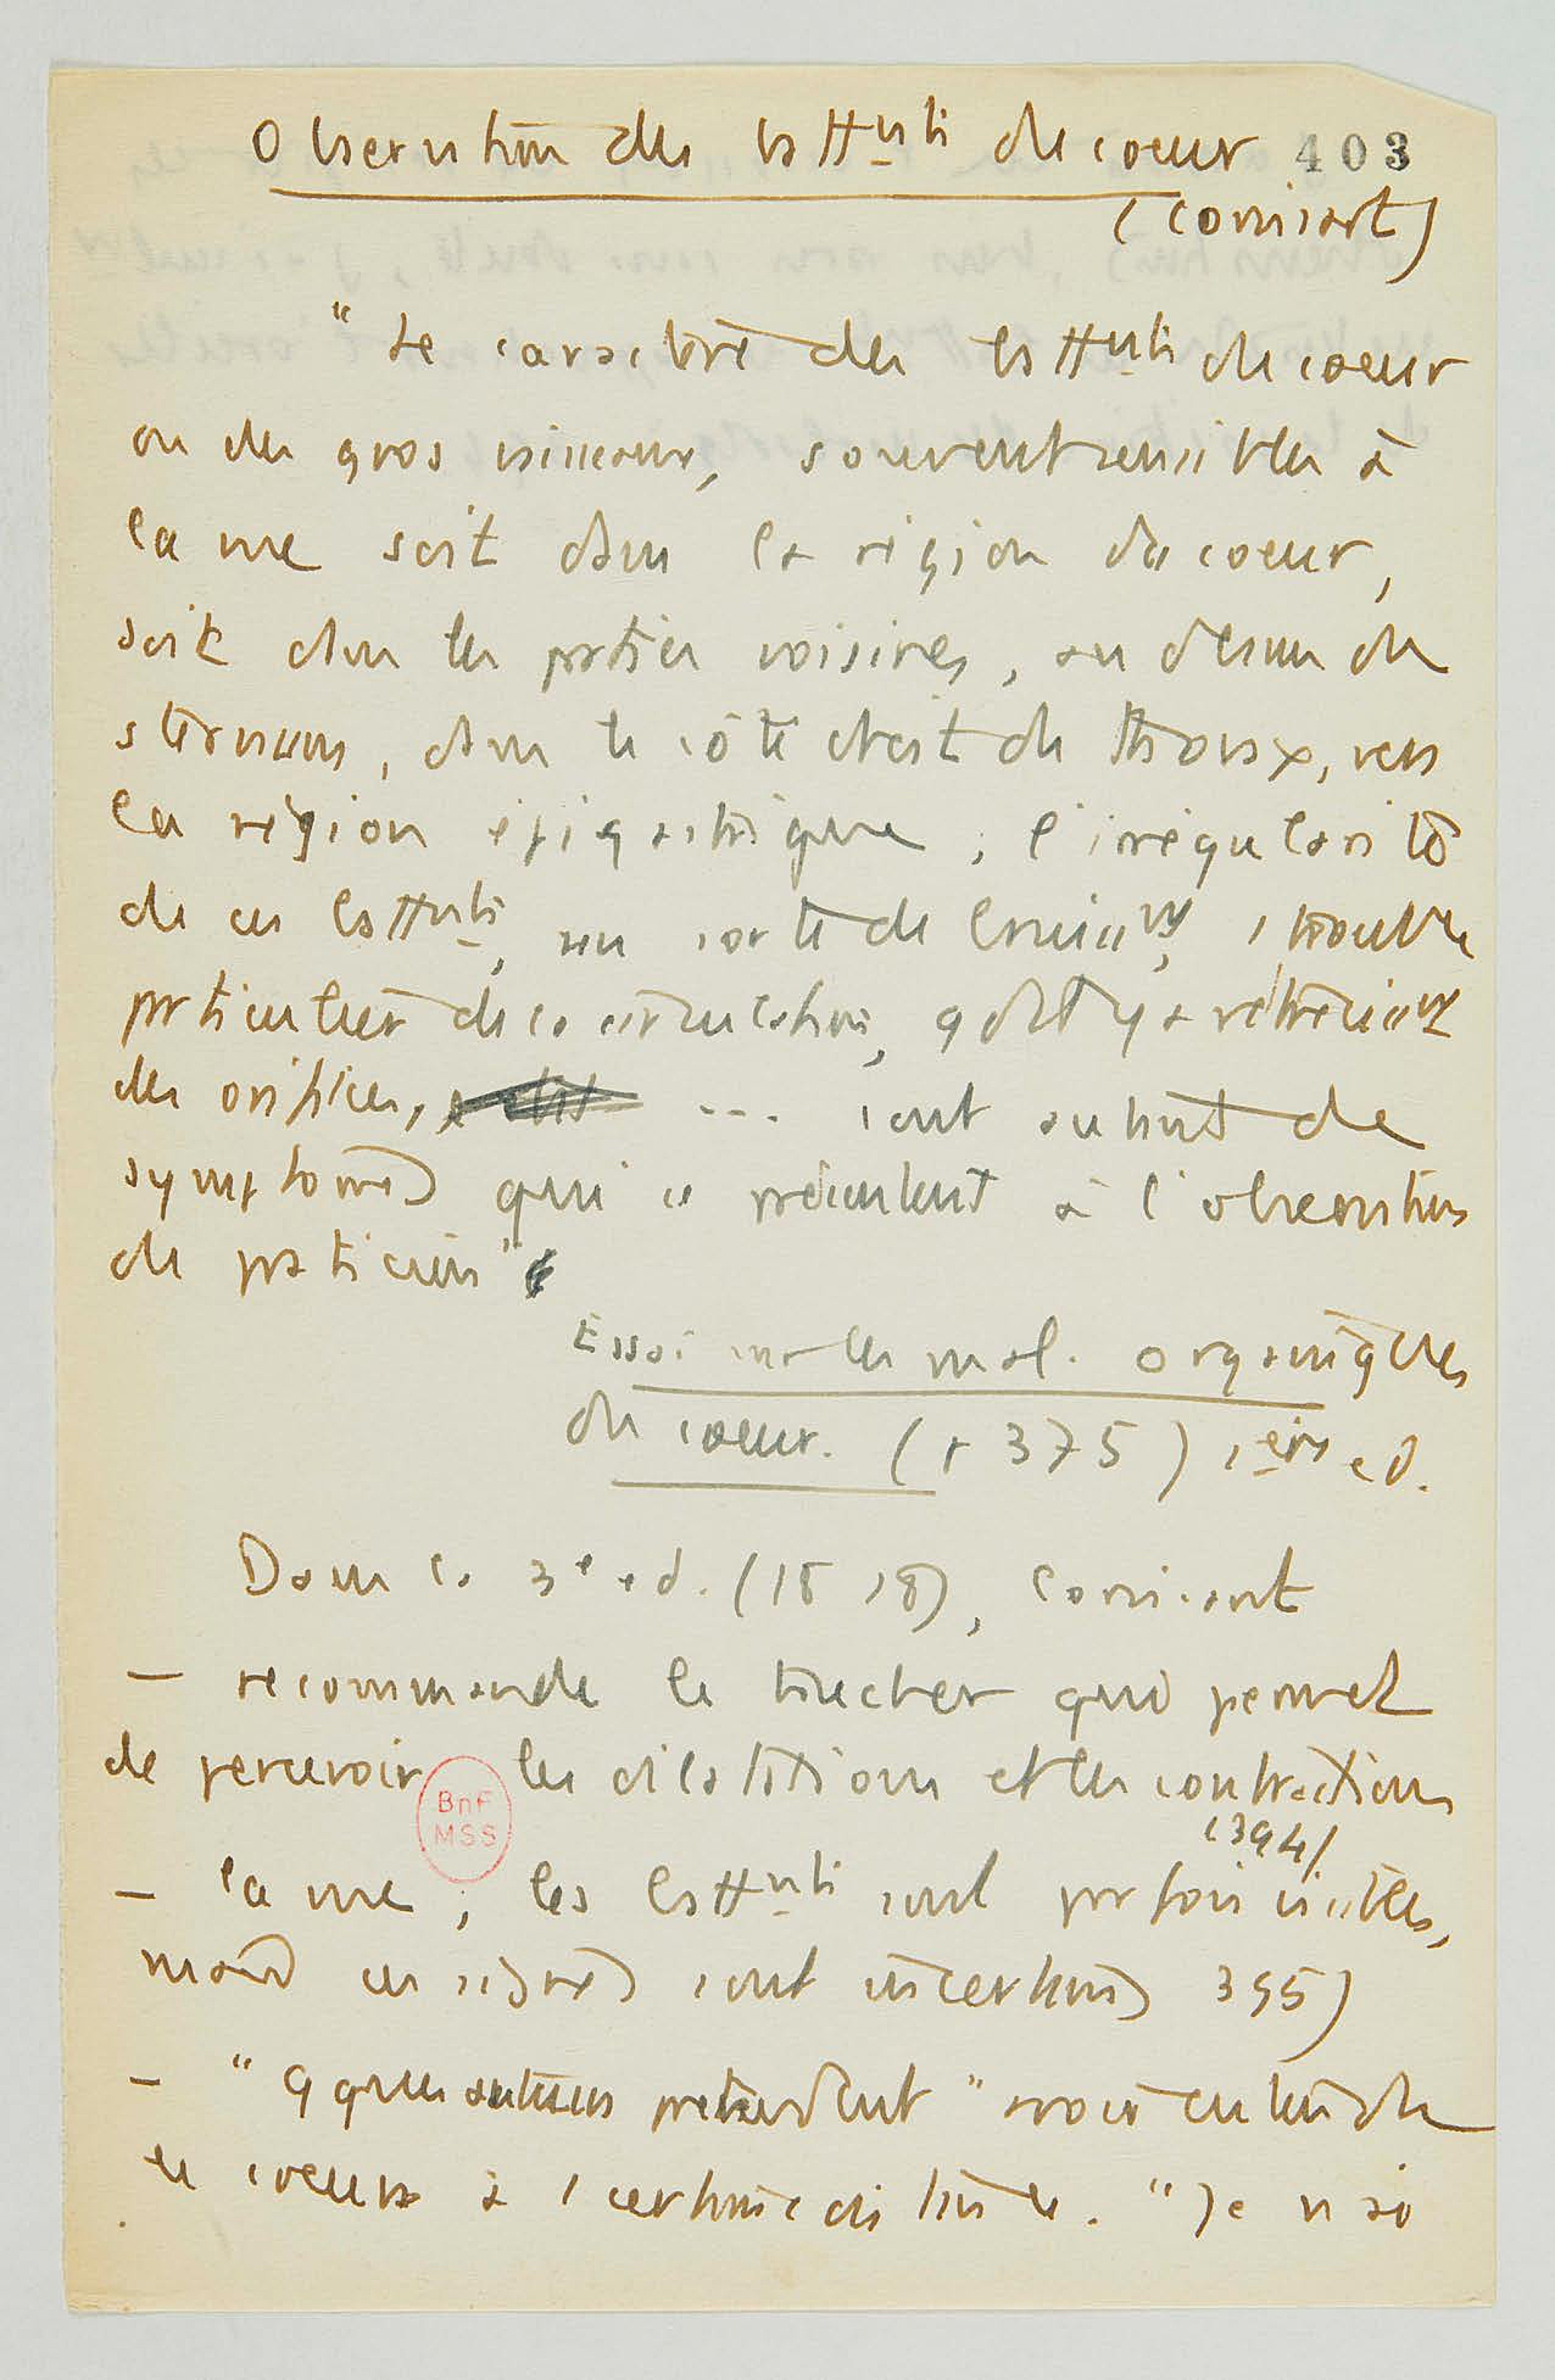 Observation des batt^nts du coeur 403
(Corvisart)
"Le caractère des batt^nts du coeur
ou des gros vaisseaux, souvent sensibles à
la vue soit dans la région du coeur,
soit dans les parties voisines, au dessus du
sternum, dans le côté droit du thorax, vers
la région épigastrique ; l'irrégularité
de ces batt^nts, une sorte de bruiss^nt, 1 trouble
particulier de la circulation, qd il y a rétréciss^nt
des orifices, ... sont autant de
symptômes qui se présentent à l'observation
du praticien"
Essai sur les mal. organiques
du coeur. (p 375) 1ère ed.
Dans la 3e ed. (1818), Corvisart
— recommande le toucher qui permet
de percevoir les dilatations et les contractions
(394)
— la vue ; les batt^nts sont parfois visibles,
mais ces signes sont incertains 395)
— "qques auteurs prétendent" avoir entendu
le coeur à 1 certaine distance. "Je n'ai
BnF
MSS